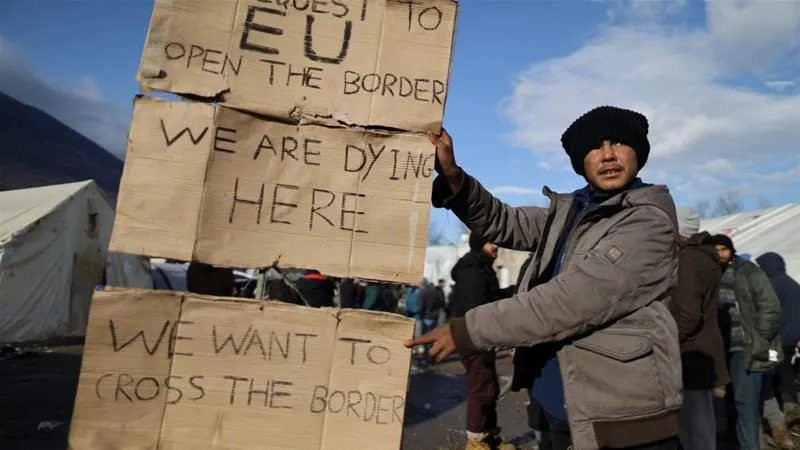 TO
EU
OPEN THE BORDER
WE ARE DYING
HERE
WE WANT TO
CROSS THE BORDER